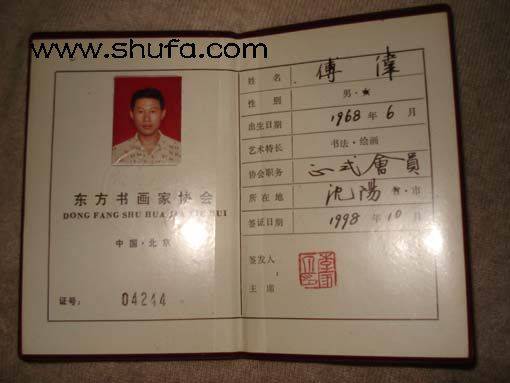 www.shufa.com
东方书画家协会
DONG FANG SHU HUA JIA XIE HUI
中国·北京
证号: 04244
姓名 傅偉
性别 男·
出生日期 1968年6月
艺术特长 书法·绘画
协会职务 正式會員
所在地 沈陽 市
签证日期 1998年10月
签发人:
主席